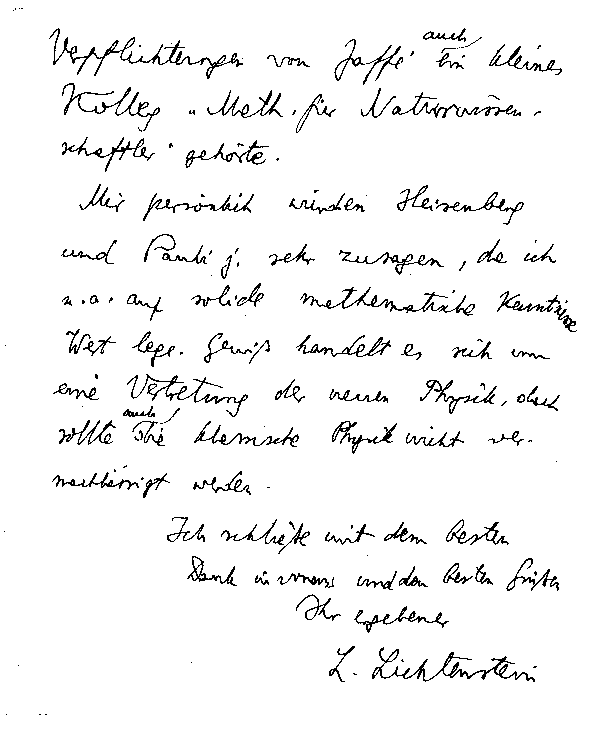 Verpflichtungen von Jaffé auch ein kleines
Kolleg „Math. für Naturwissen-
schaftler" gehörte.
Mir persönlich würden Heisenberg
und Pauli j. sehr zusagen, da ich
u.a. auf solide mathematische Kenntnisse
Wert lege. Gewiß handelt es sich um
eine Vertretung der neuen Physik, doch
sollte auch die klassische Physik nicht ver-
nachlässigt werden.
Ich schließe mit dem besten
Dank im voraus und den besten Grüßen
Ihr ergebener
L. Lichtenstein